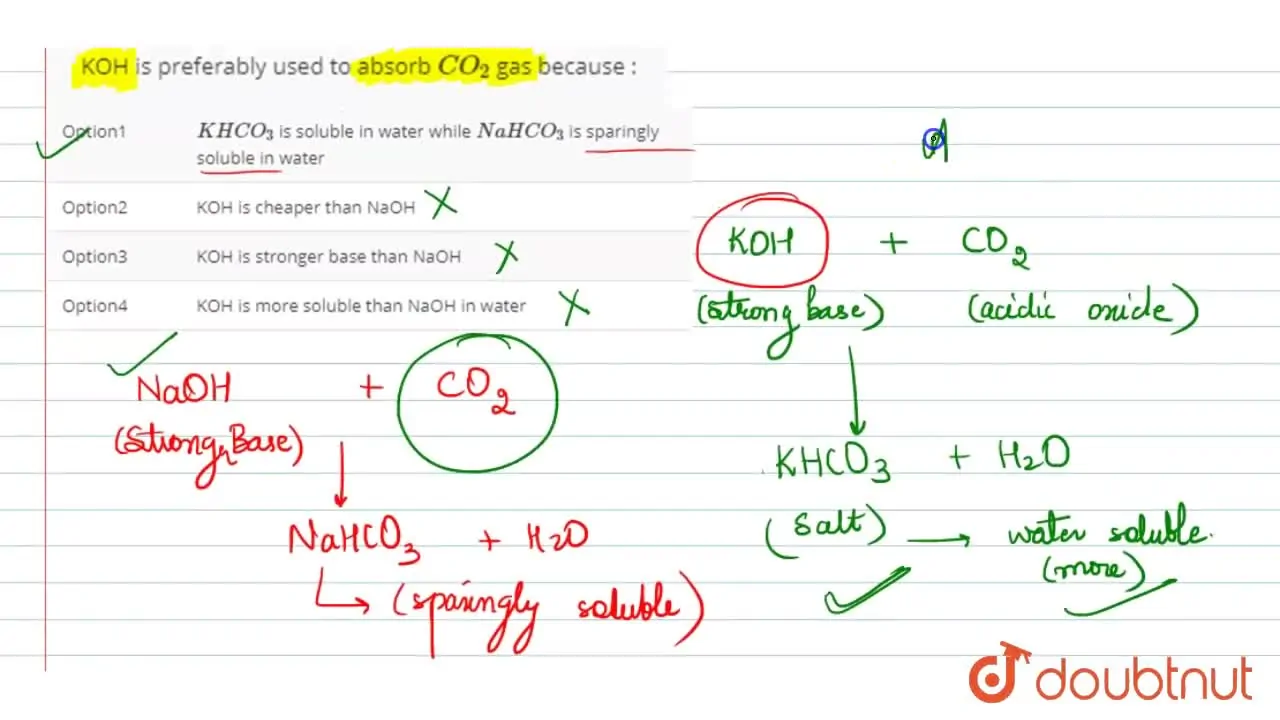 KOH is preferably used to absorb CO₂ gas because :
Option1 KHCO₃ is soluble in water while NaHCO₃ is sparingly
soluble in water
Option2 KOH is cheaper than NaOH
Option3 KOH is stronger base than NaOH
Option4 KOH is more soluble than NaOH in water
A
KOH + CO₂
(Strong base) (acidic oxide)
KHCO₃ + H₂O
(Salt) → water soluble.
(more)
NaOH + CO₂
(Strong Base)
NaHCO₃ + H₂O
(sparingly soluble)
doubtnut